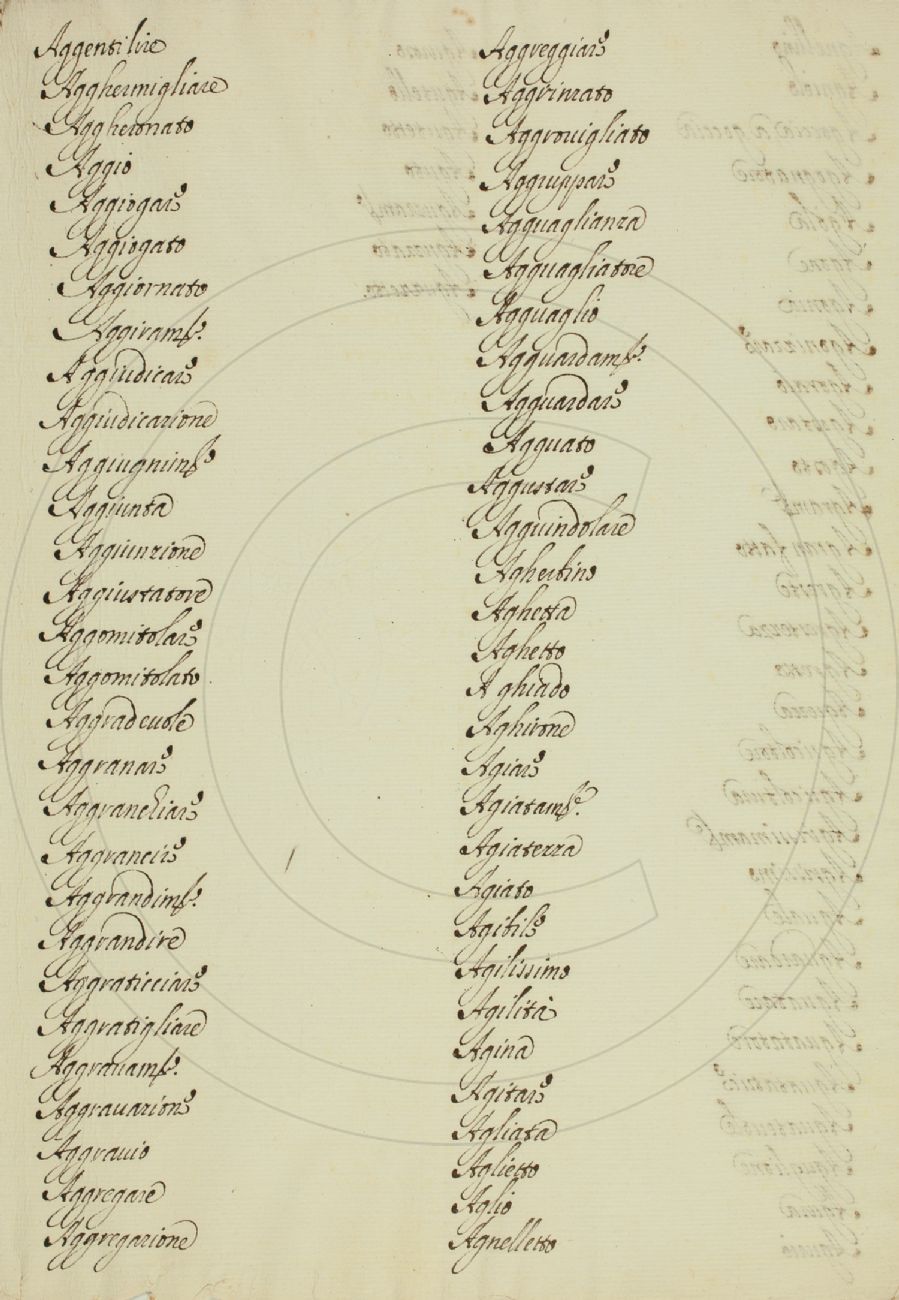 Aggentilire
Agghermigliare
Aggheronato
Aggio
Aggiogare
Aggiogato
Aggiornato
Aggiram.to
Aggiudicare
Aggiudicazione
Aggiugnim.to
Aggiunta
Aggiunzione
Aggiustatore
Aggomitolare
Aggomitolato
Aggradeuole
Aggranare
Aggranchiare
Aggrancire
Aggrandim.to
Aggrandire
Aggraticciare
Aggratigliare
Aggrauam.to
Aggrauazione
Aggrauio
Aggregare
Aggregazione
Aggreggiare
Aggrinzato
Aggrouigliato
Aggruppare
Agguaglianza
Agguagliatore
Agguaglio
Agguardam.to
Agguardare
Agguato
Aggustare
Agguindolare
Agherbino
Aghetta
Aghetto
A ghiado
Aghirone
Agiare
Agiatam.te
Agiatezza
Agiato
Agibile
Agilissimo
Agilità
Agina
Agitare
Agliata
Aglietto
Aglio
Agnelletto